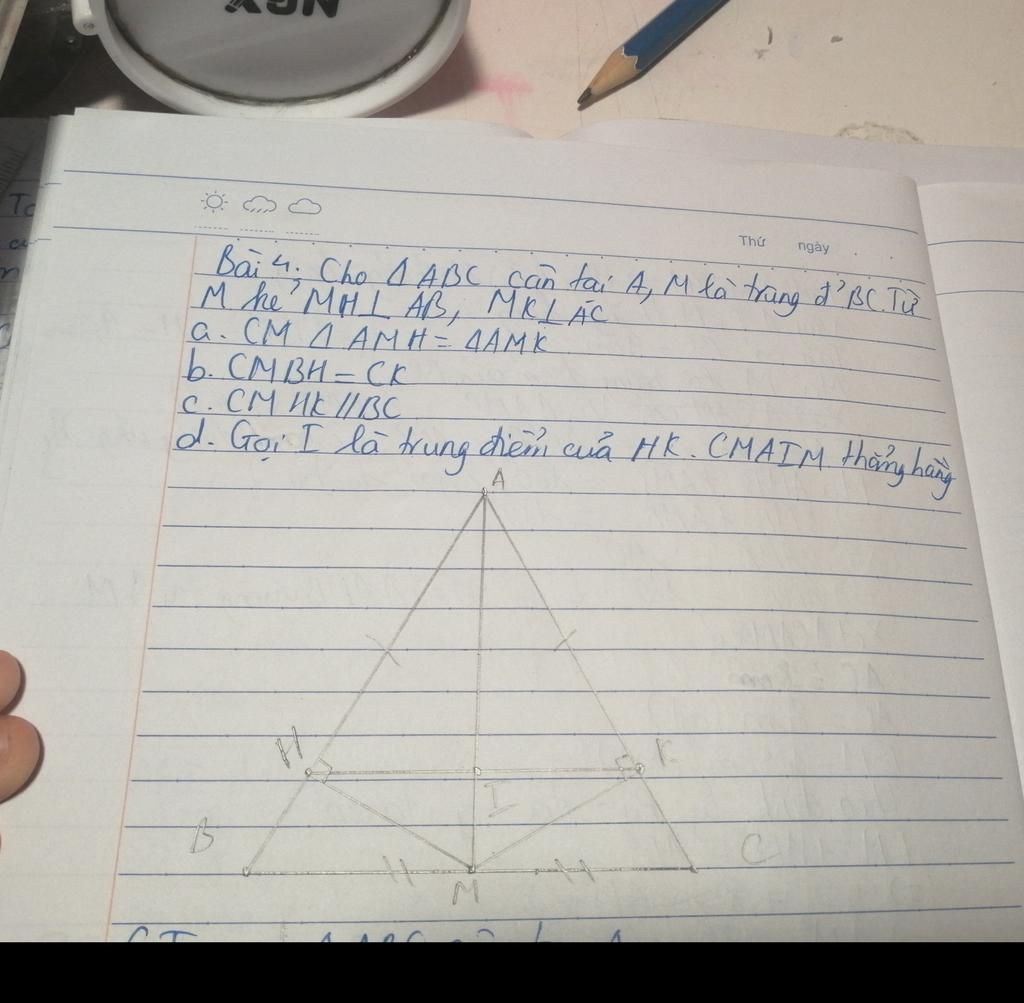 NGY
Thứ ngày
Bài 4: Cho Δ ABC cân tại A, M là trung đ' BC. Từ
M kẻ MH⊥ AB, MK⊥ AC
a. CM Δ AMH = ΔAMK
b. CMBH = CK
c. CM HK // BC
d. Gọi I là trung điểm của HK. CMAIM thẳng hàng
A
H
K
I
B
C
M